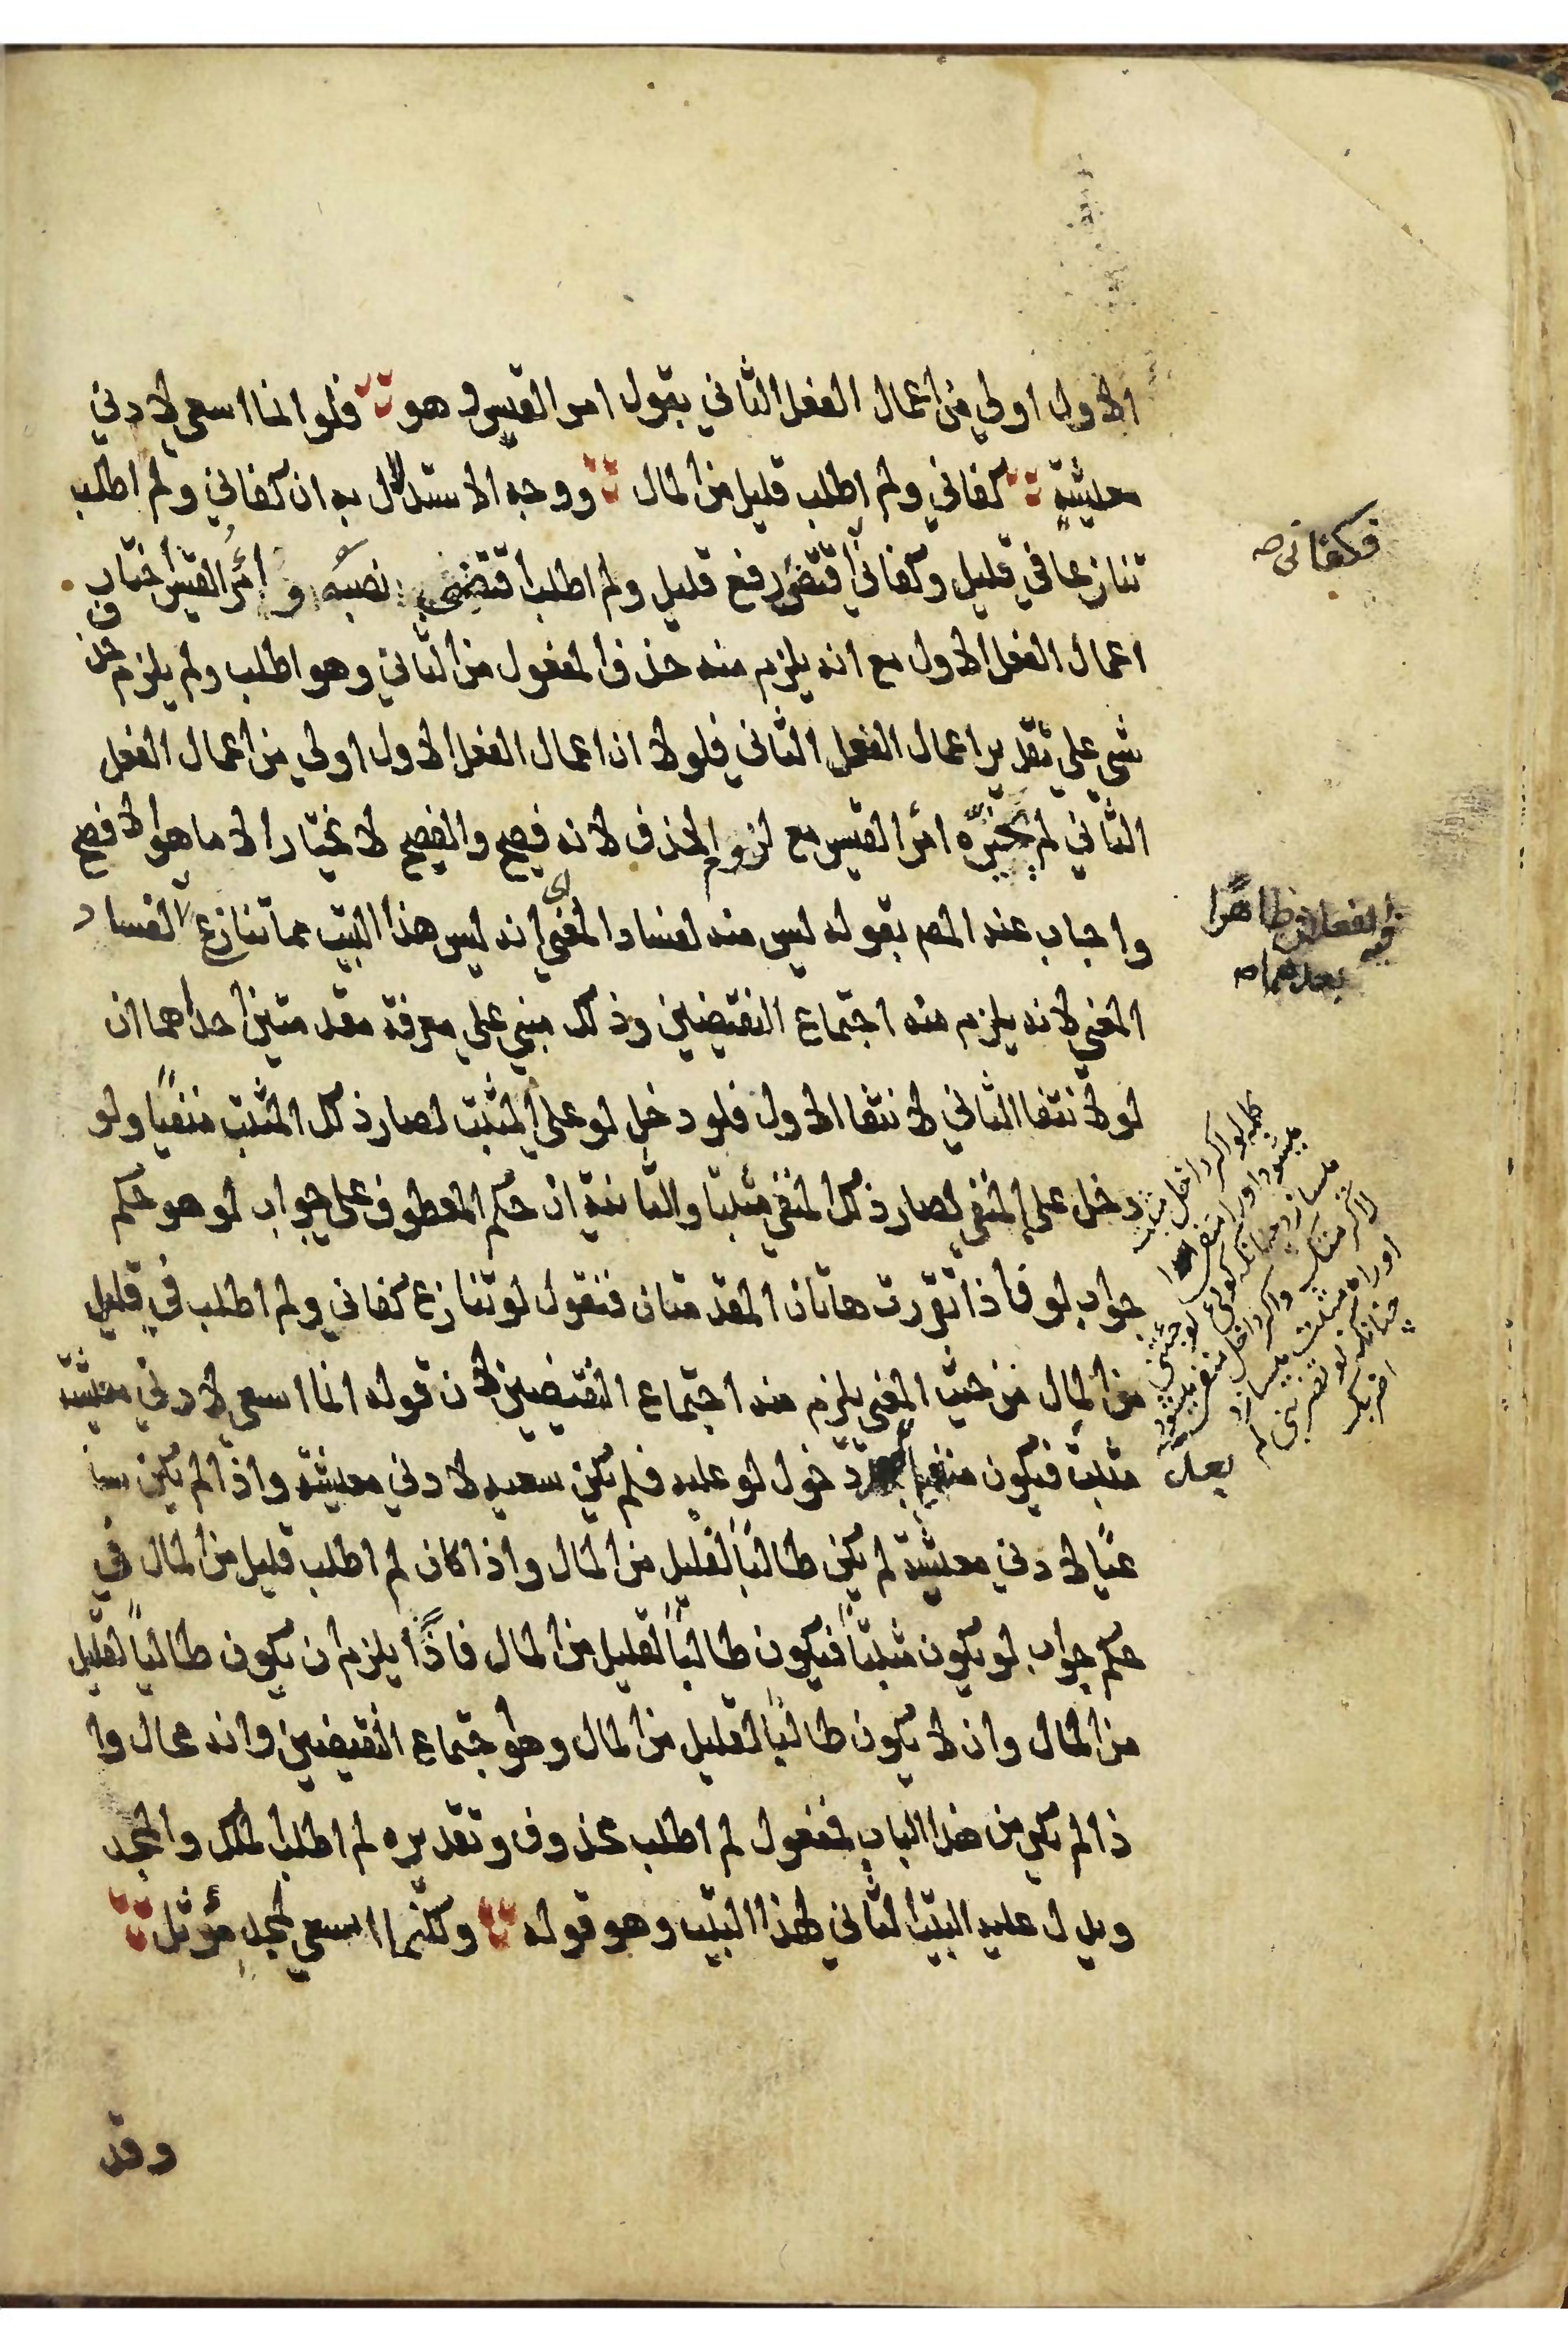 الاول اولي من اعمال الفعل الثاني بقول امر القيس وهو فلو انما اسعي لادني
معليشة كفاني ولم اطلب قليل من المال ووجه الاستدلال به ان كفاني ولم اطلب
تنازعا في قليل وكفاني اقتضي رفع قليل ولم اطلب اقتضي نصبه و امرأ القيس اختار
اعمال الفعل الاول مع انه يلزم منه حذف المفعول من الثاني وهو اطلب ولم يلزم حذف
شي علي تقدير اعمال الفعل الثاني فلولا ان اعمال الفعل الاول اولي من اعمال الفعل
الثاني لم يختره امرأ القيس مع لزوم الحذف لانه فصيح والفصيح لا يختار الا ما هو الافصح
واجاب عنه المصم بقوله ليس منه لفساد المعني اي انه ليس هذا البيت مما تنازع لا لفساد
المعني لانه يلزم منه اجتماع النقيضين وذلك مبني علي معرفة مقدمتين احداهما ان
لو لانتفا الثاني لانتفا الاول فلو دخل لو علي المثبت لصار ذلك المثبت منفيًا ولو
دخل علي المنفي لصار ذلك المنفي مثبتا والثانية ان حكم المعطوف علي جواب لو هو حكم
جواب لو فاذا تقررت هاتان المقدمتان فنقول لو تنازع كفاني ولم اطلب في قليل
من المال من حيث المعني يلزم منه اجتماع النقيضين لان قوله انما اسعي لادني معيشة
مثبت فيكون منفيا دخول لو عليه فلم يكن سعيه لادني معيشة واذا لم يكن سا
عيًا لادني معيشة لم يكن طالبًا لقليل من المال واذا كان لم اطلب قليل من المال في
حكم جواب لو يكون مثبتًا فيكون طالبًا لقليل من المال فاذًا يلزم ان يكون طالبًا لقليل
من المال وان لا يكون طالبًا لقليل من المال وهو اجتماع النقيضين وانه محال وا
ذا لم يكن من هذا الباب فمفعول لم اطلب محذوف وتقديره لم اطلب الملك والمجد
ويدل عليه البيت الثاني لهذا البيت وهو قوله ولكنما اسعي لمجد مؤثل
وقد
فكفاني صه
الفعلان ظاهرا
بعدهما صه
كلمه لو اكر داخل مثبت
ميشود اورا منفي
ميسازد چنانكه كوئي لو جئتني
لاكرمتك واكر داخل منفي ميشود
اورا مثبت ميسازد
چنانكه لو تضربني لم
اضربك
بعد